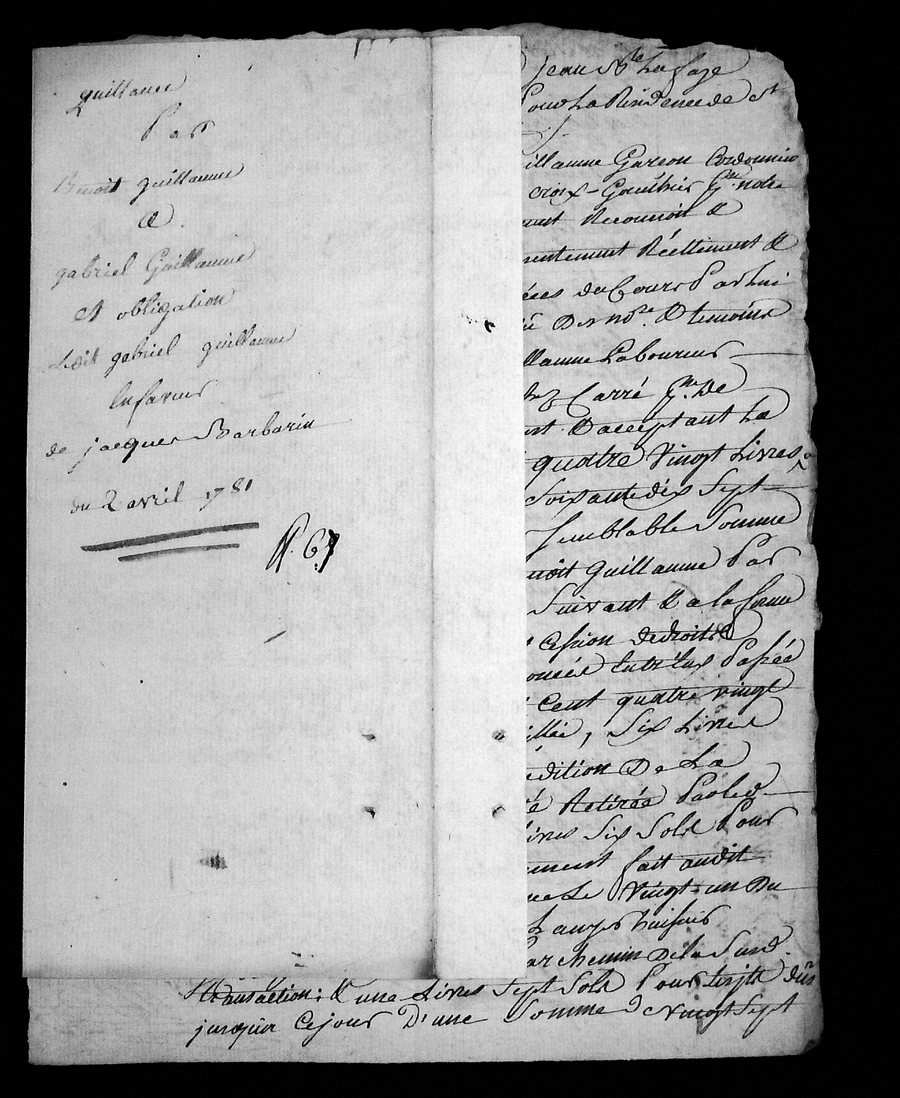 quittance
Par
Benoit guillaume
A
gabriel Guillaume
Et obligation
dudit gabriel guillaume
En faveur
de jacques Barbarin
du 2 avril 1781
jean Bte Lafage
Pour La Residence de St
illaume Gareon Cordonnier
croix-Gauthier Gn notre
ment Reconnoit &
entement Réellement &
éces du Cours Par lui
Des nore. & temoins
illaume Laboureur
Carré Pn. De
acceptant La
quatre Vingt Livres
Soixante dix Sept
Semblable Somme
noit Guillaume Par
Suivant & a la forme
Cession de droits &
Entr'Eux Passée
Cent quatre vingt
illée, Six Livres
édition De La
Retirée
ivres Six Sols Pour
ment fait audit
ne Le Vingt un Du
huissier
Parchemin De la Susd.
transaction; & une Livres Sept Sols Pour
jusqua Ce jour D'une Somme De Vingt Sept